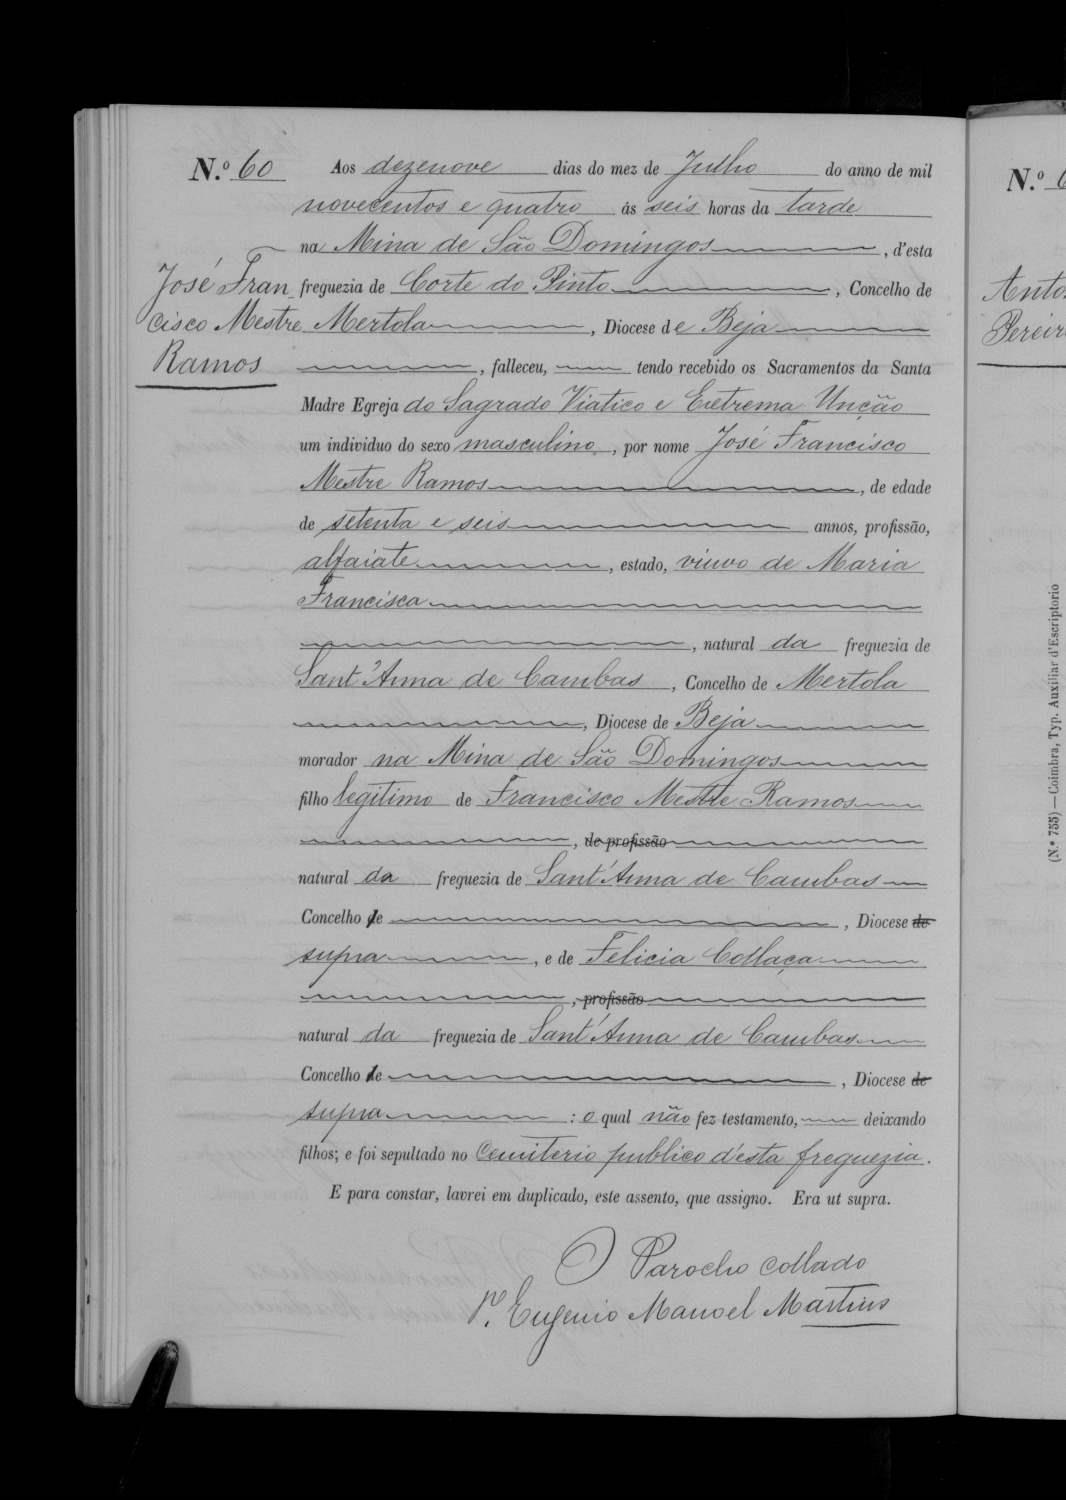 N.º 60
José Fran
cisco Mestre
Ramos
Aos dezenove dias do mez de Julho do anno de mil
novecentos e quatro ás seis horas da tarde
na Mina de São Domingos, d'esta
freguezia de Corte do Pinto, Concelho de
Mertola, Diocese de Beja
, falleceu, tendo recebido os Sacramentos da Santa
Madre Egreja do Sagrado Viatico e Extrema Unção
um individuo do sexo masculino, por nome José Francisco
Mestre Ramos, de edade
de setenta e seis annos, profissão,
alfaiate, estado, viuvo de Maria
Francisca
, natural da freguezia de
Sant'Anna de Cambas, Concelho de Mertola
, Diocese de Beja
morador na Mina de São Domingos
filho legitimo de Francisco Mestre Ramos
, de profissão
natural da freguezia de Sant'Anna de Cambas
Concelho de , Diocese de
supra, e de Felicia Collaça
, profissão
natural da freguezia de Sant'Anna de Cambas
Concelho de , Diocese de
supra : o qual não fez testamento, deixando
filhos; e foi sepultado no Cemiterio publico d'esta freguezia.
E para constar, lavrei em duplicado, este assento, que assigno. Era ut supra.
O Parocho collado
P.e Eugenio Manoel Martins
N.º 6
Anto
Pereir
(N.º 755)—Coimbra, Typ. Auxiliar d'Escriptorio